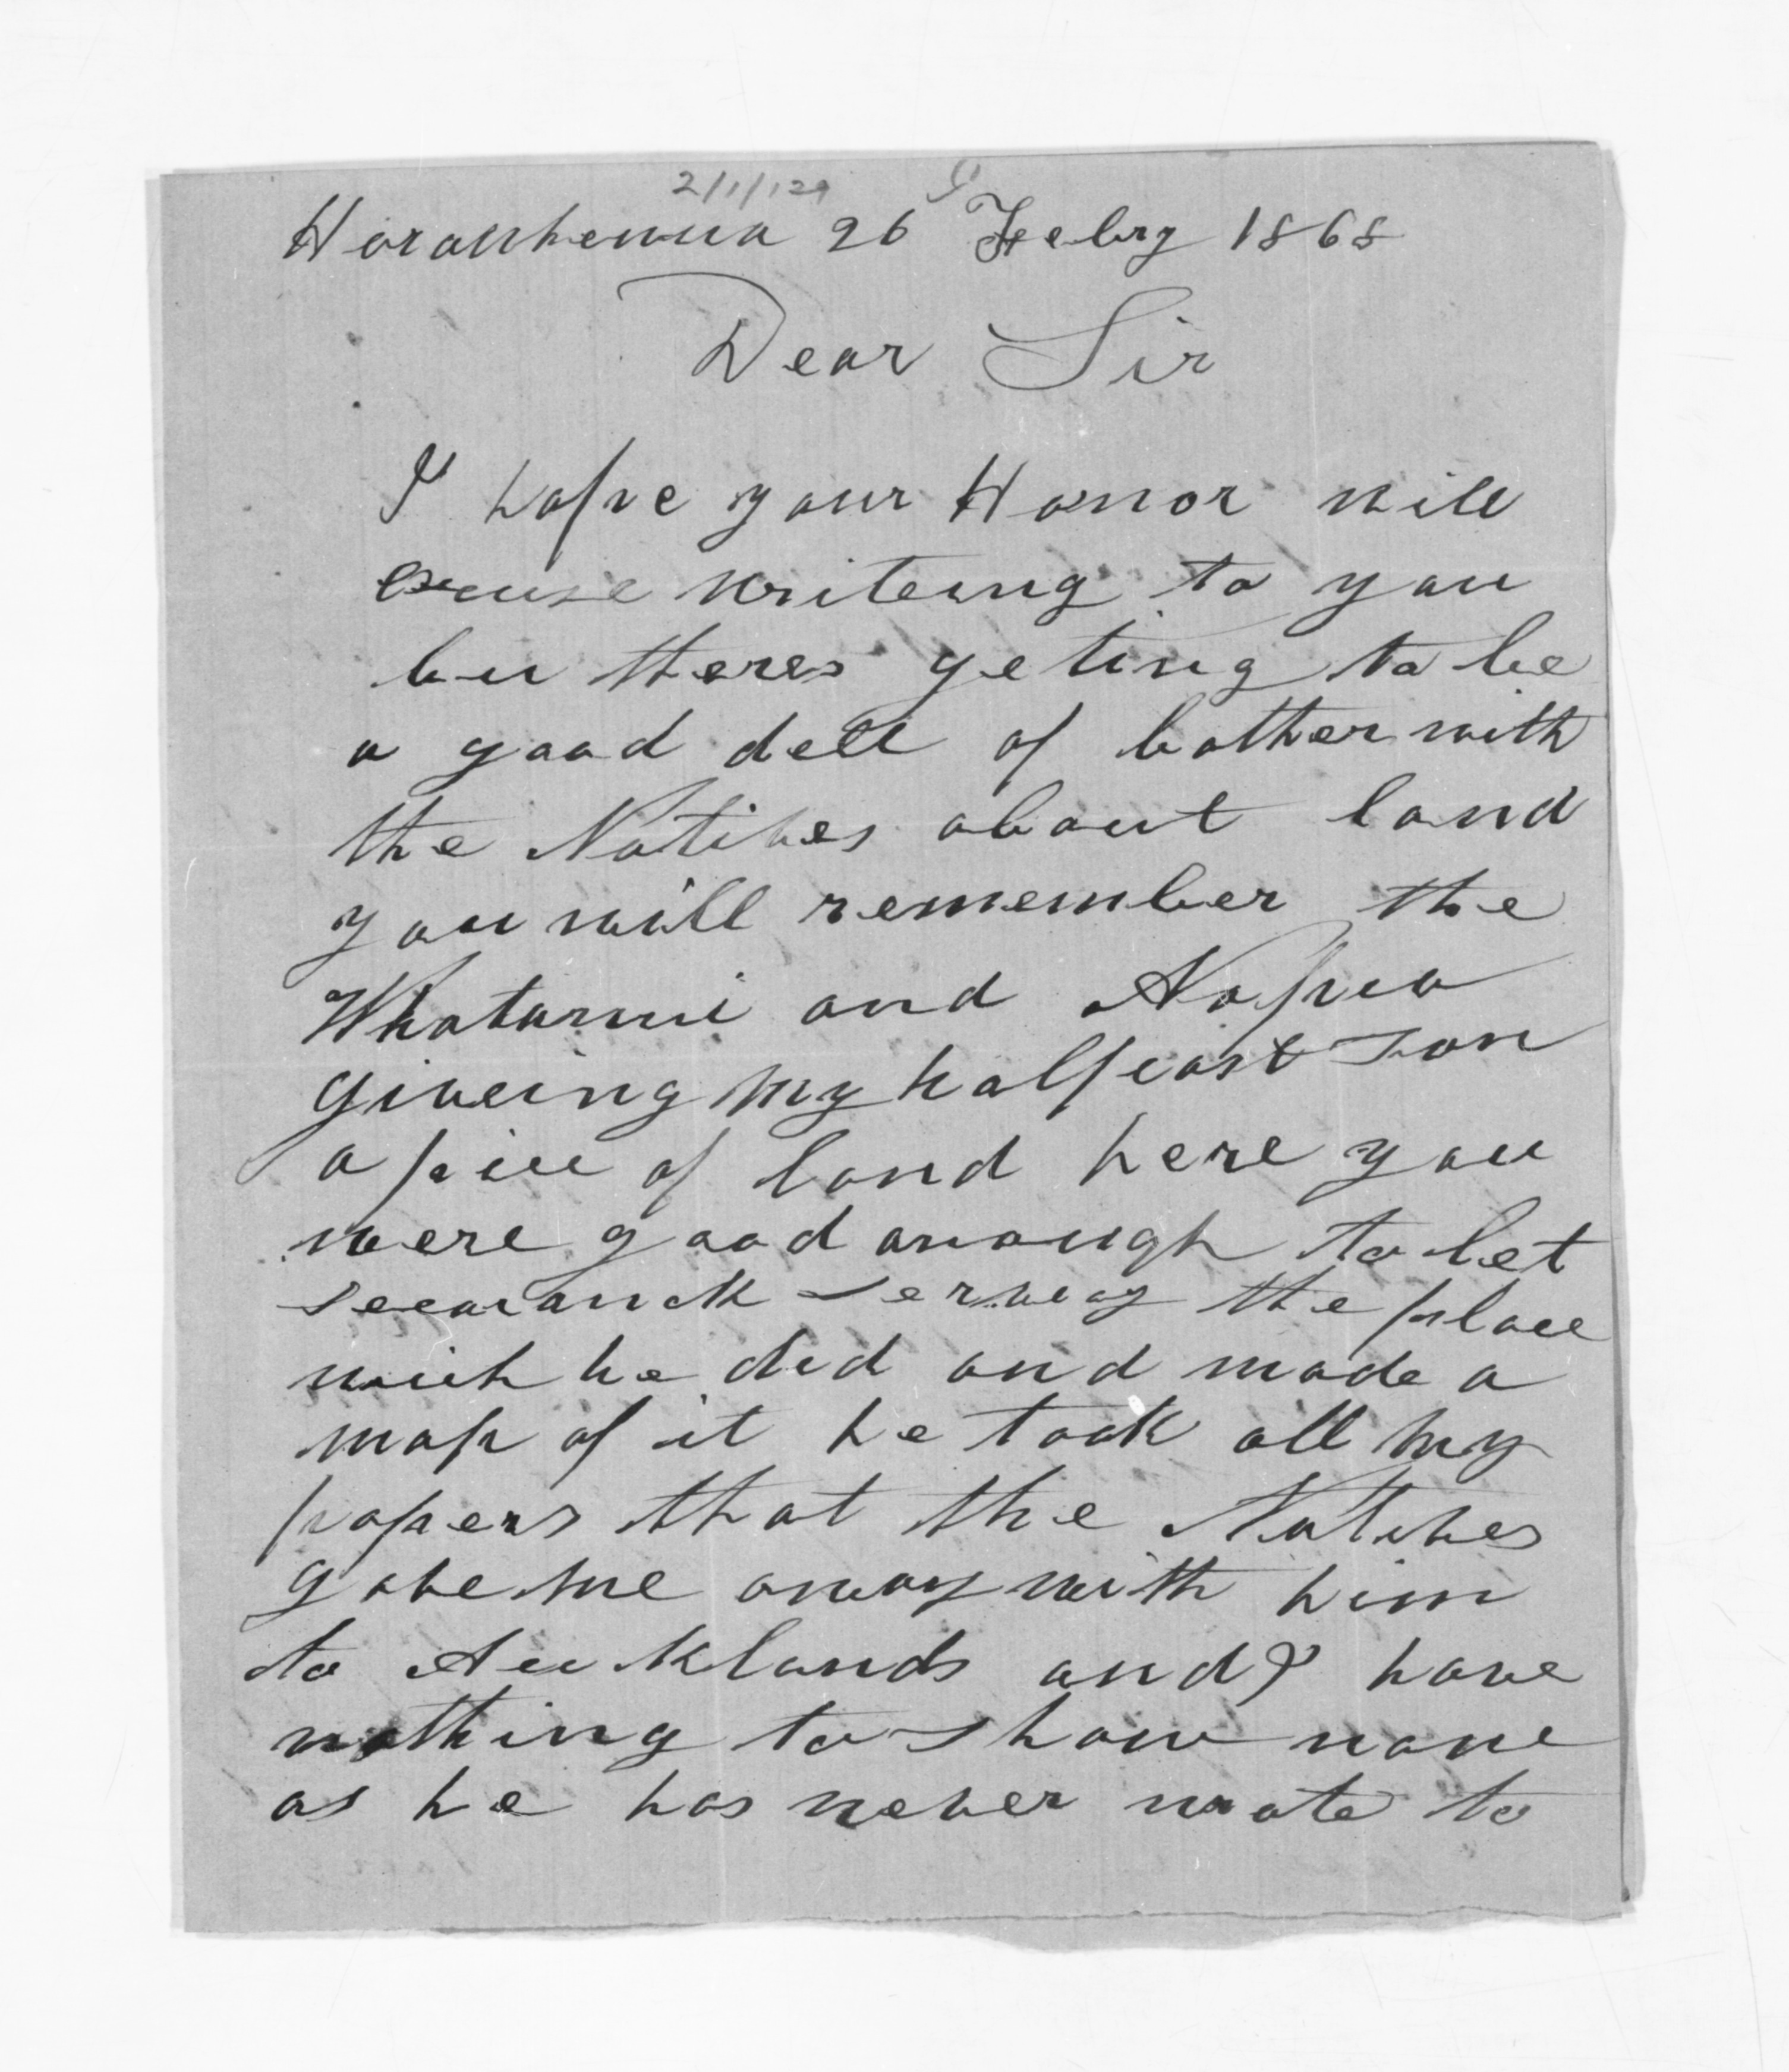 2/1/129
Horowhenua 26 Febry 1868
Dear Sir
I hope your Honor will
excuse writeing to you
bu theres geting to be
a good dell of bother with
the Natives about land
you will remember the
Whatanui and Nopera
giveing my halfcast son
a piece of land here you
were good anough to let
servay the place
wich he did and made a
map of it he took all my
papers that the Natives
gave me away with him
to Aucklands and I have
nothing to show none
as he has never wrote to